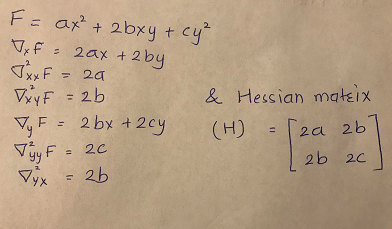 F = ax² + 2bxy + cy²
∇ₓF = 2ax + 2by
∇²ₓₓF = 2a
∇²ₓᵧF = 2b
∇ᵧF = 2bx + 2cy
∇²ᵧᵧF = 2c
∇²ᵧₓ = 2b
& Hessian matrix
(H) = [2a 2b
2b 2c]